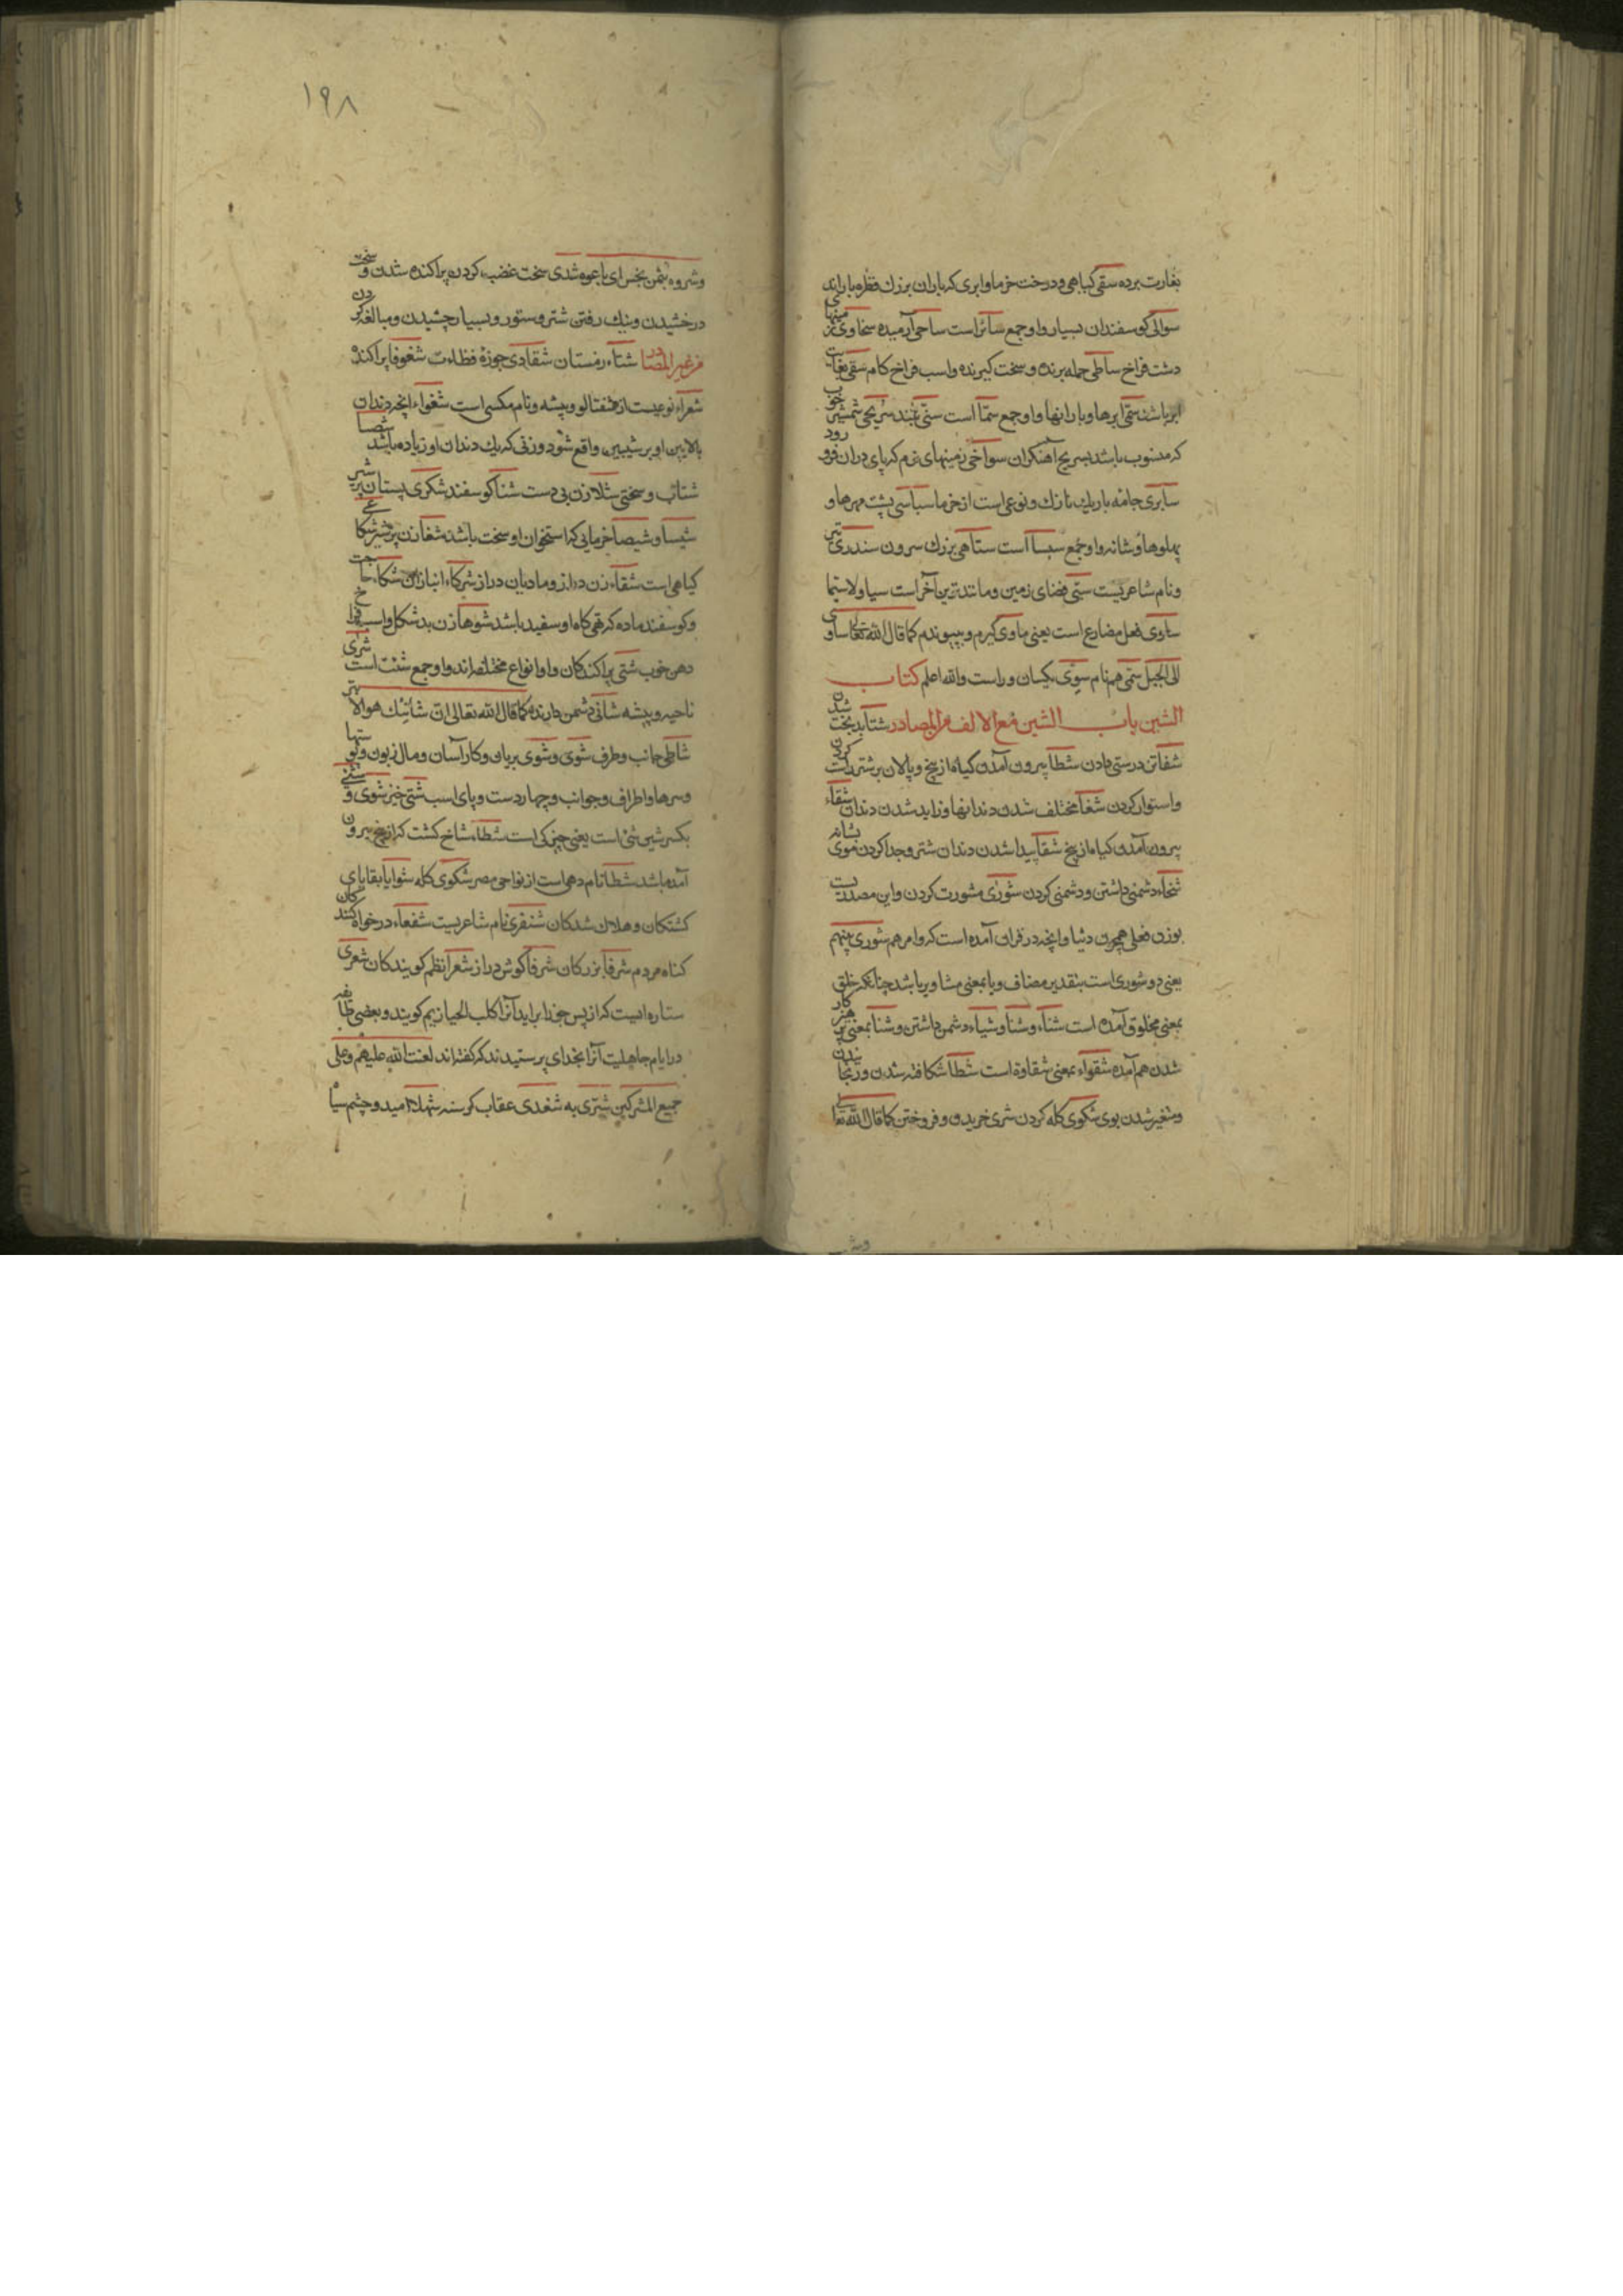 بغارت برده سقی گیاهی و درخت خرما و ابری که باران بزرك قطره باراند
سوالی کوسفندان بسیار واو جمع سائر است ساحی آرمیده سخاوی زمینهای
دشت فراخ ساطی حمله برنده و سخت کیرنده واسب فراخ کام سقی
ابر باشند سمی ابرها و بارانها واو جمع سما است سریجی شمشیر خوب
که منسوب باشد بسریج آهنکران سواخی زمینهای نرم که پای دران فرو رود
سابری جامه باریك نازك و نوعی است از خرما سباسی پشت مهرها و
پهلوها و شانه واو جمع سیسا است ستاهی بزرك سرون سندری تیر
و نام شاعریست سیی فضای زمین و مانند ترین آخر است سیا ولاسیما
ساوی فعل مضارع است یعنی ماوی کیرم و بپیوندم کما قال الله تعالی ساوی
الی الجبل سمی هم نام سوی یکسان و راست والله اعلم کتاب
الشین باب الشین مع الالف من المصادر شتا بدبخت شدن
شفا تن درستی دادن شطا بیرون آمدن کیاه از بیخ و پالان بر شتر راست کردن
واستوار کردن شغا مختلف شدن دندانها و زاید شدن دندان شقاء
بیرون آمدن کیاه از بیخ شقا پیدا شدن دندان شتر و جدا کردن موی بشانه
شحناء دشمنی داشتن و دشمنی کردن شوری مشورت کردن و این مصدریست
بوزن فعلی همچون دنیا و انچه در قران آمده است که وامرهم شوری بینهم
یعنی ذو شوری است بتقدیر مضاف و یا بمعنی مشاور یا باشد چنانکه خلق
بمعنی مخلوق آمده است شناء و شنا و شیاء دشمن داشتن و شنا بمعنی پرهیزکار
شدن هم آمده شقواء بمعنی شقاوة است شطا شکافته شدن و رنجانیدن
و متغیر شدن بوی شکوی کله کردن شری خریدن و فروختن کما قال الله تعالی
۱۹۸
وشروه بثمن بخس ای باعوه شدی سخت غضب کردن پراکنده شدن و سخت
درخشیدن و نیك رفتن شتر و ستور و بسیار چشیدن و مبالغه کردن
من غیر المصادر شتاء زمستان شقادی جوزهٔ شغوفا پراکنده
شعراء نوعیست از شفتالو و بیشه و نام مکسی است شغواء انچه دندان
بالایین او بر شیبین واقع شود و زنی که یك دندان او زیاده باشد شصا
شتاب و سختی شلا زن بی دست شنا کوسفند شکری پستان پر شیر
شیسا و شیصا خرمایی که استخوان او سخت باشد شغا زن پرشیر شکاعی
کیاهی است شقاء زن دراز و مادیان دراز شرکاء انبازان شکاء حاجت
و کوسفند ماده که تهی کاه او سفید باشد شوها زن بدشکل و اسب فراخ
دهن خوب شتی پراکندکان و او انواع مختلفه اند واو جمع شتت است شری
ناحیه و بیشه شانی دشمن دارنده کما قال الله تعالی ان شانئك هو الابتر
شاطی جانب و طرف شوی و شوی بریان و کار آسان و مال زبون و پوستها
وسرها و اطراف و جوانب و چهار دست و پای اسب شتی خیز شوی و شئی
بکسر شین شئ است یعنی چیزکی است شطا شاخ کشت که از بیخ بیرون
آمده باشد شطا نام دهی است از نواحی مصر شکوی کله شوایا بقایای
کشتکان و هلاك شدکان شنفری نام شاعریست شفعاء درخواه کنندکان
کناه مردم شرفا بزرکان شرفا کوش دراز شعرا نظم کویندکان شعری
ستاره ایست که از پس جوزا براید آنرا کلب الجبار نیز هم کویند و بعضی طایفه
در ایام جاهلیت آنرا بخدای پرستیدند که کفته اند لعنت الله علیهم وعلی
جمیع المشرکین شتری به شغدی عقاب کرسنه شهلا امید و چشم سیاه